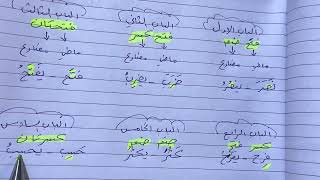 الباب الاول
فتح ضم
ماضي مضارع
نَصَرَ - يَنْصُرُ
الباب الثاني
فتح كسر
ماضي مضارع
ضَرَبَ - يَضْرِبُ
الباب الثالث
فتحتان
ماضي مضارع
فتَحَ - يَفْتَحُ
الباب الرابع
كسر فتح
فَرِحَ - يَفْرَحُ
الباب الخامس
ضم ضم
كَثُرَ - يَكْثُرُ
الباب السادس
كسرتان
حَسِبَ - يَحْسِبُ